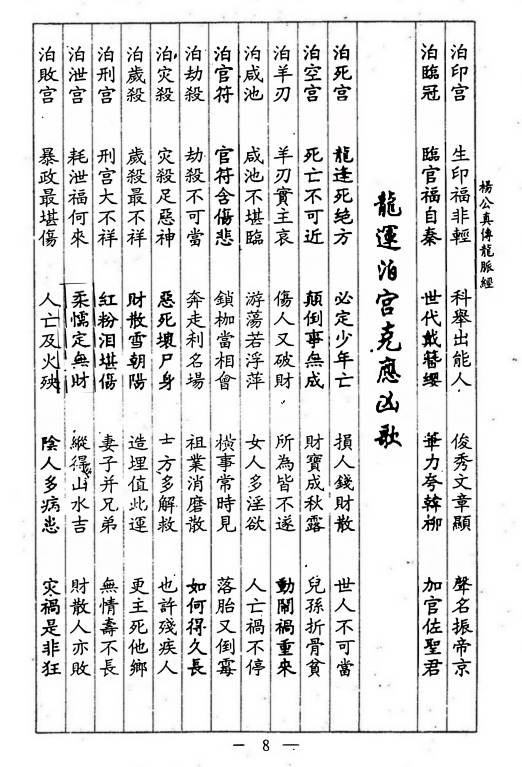 楊公真傳龍脈經
泊印宮 生印福非輕 科舉出能人 俊秀文章顯 聲名振帝京
泊臨冠 臨官福自秦 世代戴簪纓 筆力夸韓柳 加官佐聖君
龍運泊宮克應凶歌
泊死宮 龍逢死絕方 必定少年亡 損人錢財散 世人不可當
泊空宮 死亡不可近 顛倒事無成 財寶成秋露 兒孫折骨貧
泊羊刃 羊刃實主哀 傷人又破財 所為皆不遂 動鬧禍重來
泊咸池 咸池不堪臨 游蕩若浮萍 女人多淫欲 人亡禍不停
泊官符 官符含傷悲 鎖枷當相會 橫事常時見 落胎又倒霉
泊劫殺 劫殺不可當 奔走利名場 祖業消磨散 如何得久長
泊灾殺 灾殺足惡神 惡死壞尸身 士方多解救 也許殘疾人
泊歲殺 歲殺最不祥 財散雪朝陽 造埋值此運 更主死他鄉
泊刑宮 刑宮大不祥 紅粉泪堪傷 妻子并兄弟 無情壽不長
泊泄宮 耗泄福何來 柔懦定無財 縱得山水吉 財散人亦敗
泊敗宮 暴政最堪傷 人亡及火殃 陰人多病患 灾禍是非狂
— 8 —